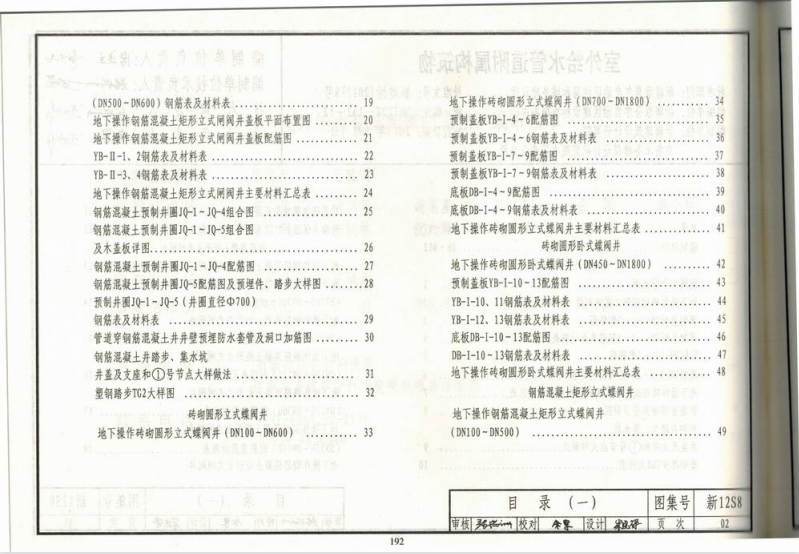 (DN500~DN600)钢筋表及材料表 19
地下操作钢筋混凝土矩形立式闸阀井盖板平面布置图 20
地下操作钢筋混凝土矩形立式闸阀井盖板配筋图 21
YB-Ⅱ-1、2钢筋表及材料表 22
YB-Ⅱ-3、4钢筋表及材料表 23
地下操作钢筋混凝土矩形立式闸阀井主要材料汇总表 24
钢筋混凝土预制井圈JQ-1~JQ-4组合图 25
钢筋混凝土预制井圈JQ-1~JQ-5组合图
及木盖板详图 26
钢筋混凝土预制井圈JQ-1~JQ-4配筋图 27
钢筋混凝土预制井圈JQ-5配筋图及预埋件、踏步大样图 28
预制井圈JQ-1~JQ-5(井圈直径Φ700)
钢筋表及材料表 29
管道穿钢筋混凝土井井壁预埋防水套管及洞口加筋图 30
钢筋混凝土井踏步、集水坑
井盖及支座和①号节点大样做法 31
塑钢踏步TG2大样图 32
砖砌圆形立式蝶阀井
地下操作砖砌圆形立式蝶阀井(DN100~DN600) 33
地下操作砖砌圆形立式蝶阀井(DN700~DN1800) 34
预制盖板YB-Ⅰ-4~6配筋图 35
预制盖板YB-Ⅰ-4~6钢筋表及材料表 36
预制盖板YB-Ⅰ-7~9配筋图 37
预制盖板YB-Ⅰ-7~9钢筋表及材料表 38
底板DB-Ⅰ-4~9配筋图 39
底板DB-Ⅰ-4~9钢筋表及材料表 40
地下操作砖砌圆形立式蝶阀井主要材料汇总表 41
砖砌圆形卧式蝶阀井
地下操作砖砌圆形卧式蝶阀井(DN450~DN1800) 42
预制盖板YB-Ⅰ-10~13配筋图 43
YB-Ⅰ-10、11钢筋表及材料表 44
YB-Ⅰ-12、13钢筋表及材料表 45
底板DB-Ⅰ-10~13配筋图 46
DB-Ⅰ-10~13钢筋表及材料表 47
地下操作砖砌圆形卧式蝶阀井主要材料汇总表 48
钢筋混凝土矩形立式蝶阀井
地下操作钢筋混凝土矩形立式蝶阀井
(DN100~DN500) 49
目 录 (一) 图集号 新12S8
审核 校对 设计 页 次 02
192